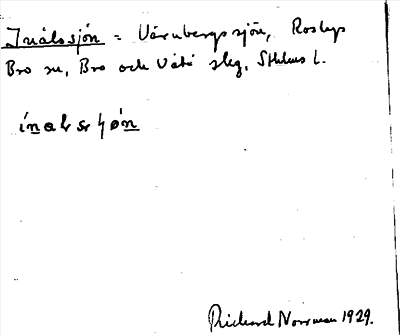 Inålssjön = Värnbergssjön, Roslags
Bro sn, Bro och Vätö skg, Sthlms l.
ínalsʂɧøn
Richard Norrman 1929.